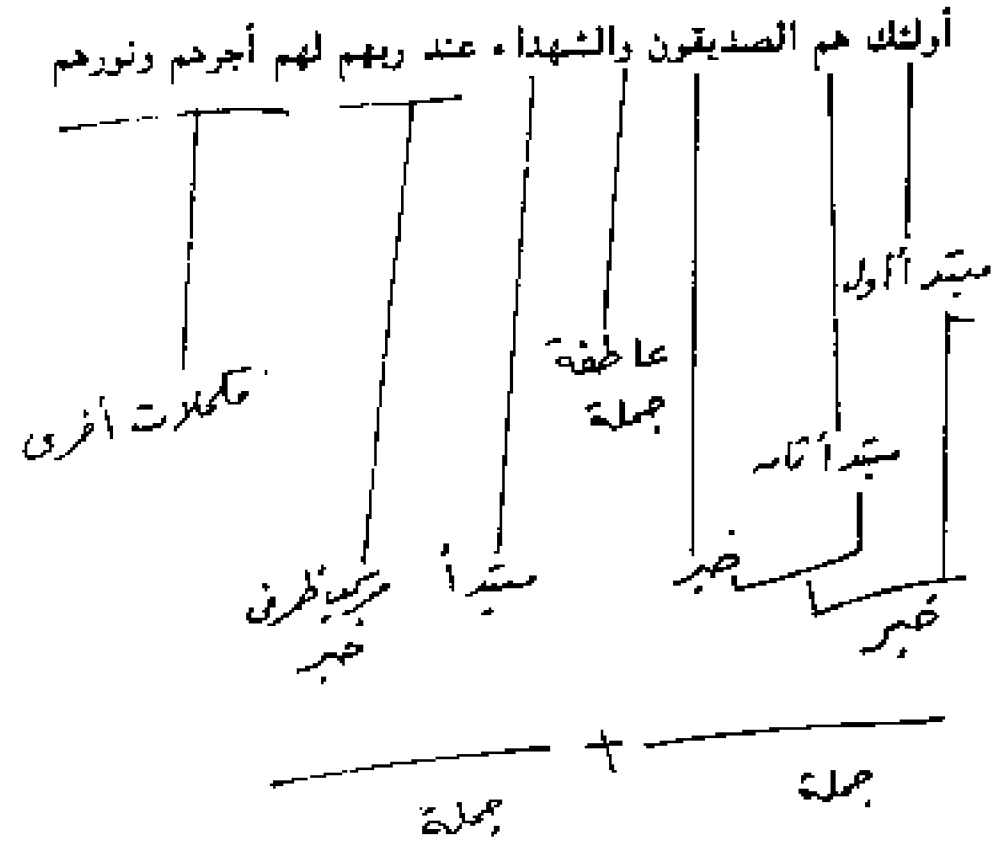 أولئك هم الصديقون والشهداء عند ربهم لهم أجرهم ونورهم
مبتدأ أول
عاطفة
جملة
مكملات أخرى
مبتدأ ثان
خبر
مبتدأ
مركب ظرفي
خبر
خبر
+
جملة
جملة